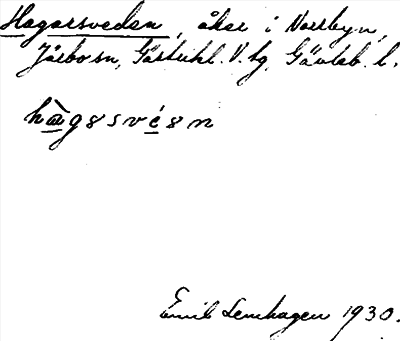 Hagarsveden, åker i Norrbyn,
Järbo sn, Gästrikl. V. tg, Gävleb. l.
hàgəsvéən
Emil Lenhagen 1930.